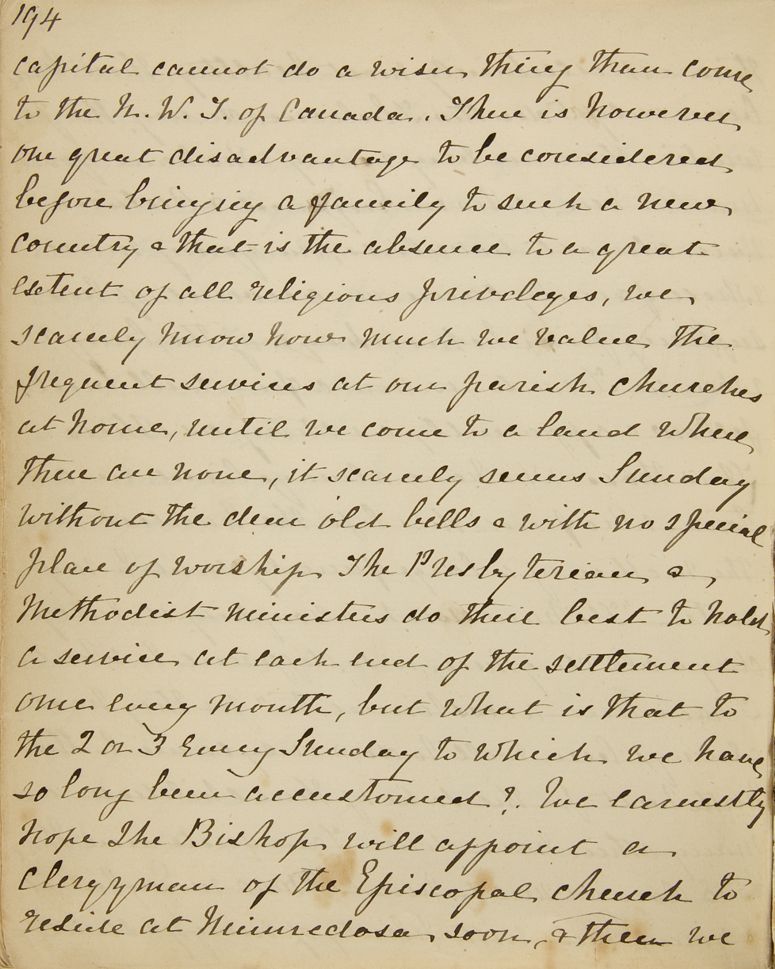 194
capital cannot do a wiser thing than come
to the N. W. T. of Canada. There is however
one great disadvantage to be considered
before bringing a family to such a new
country & that is the absence to a great
extent of all religious priveleges, we
scarcely know how much we value the
frequent services at our parish churches
at home, until we come to a land where
there are none, it scarcely seems Sunday
without the dear old bells & with no special
place of worship. The Presbyterian &
Methodist ministers do their best to hold
a service at each end of the settlement
once every month, but what is that to
the 2 or 3 every Sunday to which we have
so long been accustomed?. We earnestly
hope the Bishop will appoint a
clergyman of the Episcopal church to
reside at Minnedosa soon, & then we